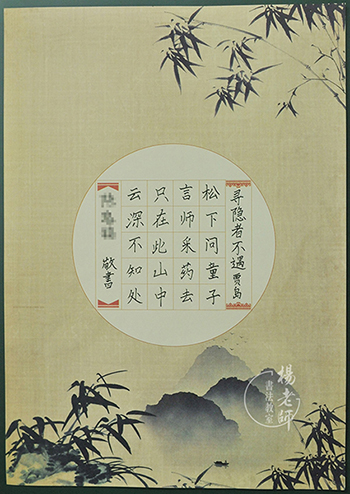 寻隐者不遇 贾岛
松下问童子
言师采药去
只在此山中
云深不知处
敬书
杨老師
書法教室